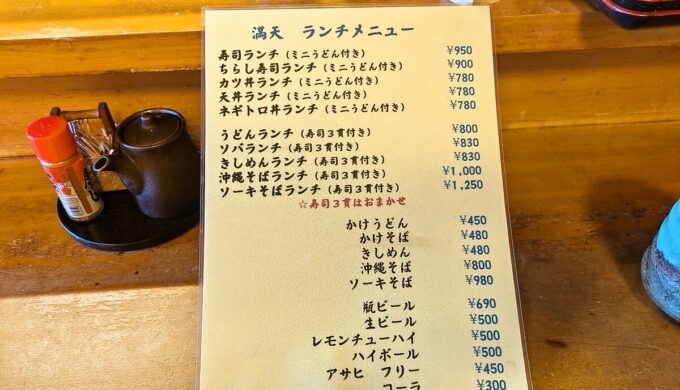 満天 ランチメニュー
寿司ランチ（ミニうどん付き） ¥950
ちらし寿司ランチ（ミニうどん付き） ¥900
カツ丼ランチ（ミニうどん付き） ¥780
天丼ランチ（ミニうどん付き） ¥780
ネギトロ丼ランチ（ミニうどん付き） ¥780
うどんランチ（寿司３貫付き） ¥800
ソバランチ（寿司３貫付き） ¥830
きしめんランチ（寿司３貫付き） ¥830
沖縄そばランチ（寿司３貫付き） ¥1,000
ソーキそばランチ（寿司３貫付き） ¥1,250
☆寿司３貫はおまかせ
かけうどん ¥450
かけそば ¥480
きしめん ¥480
沖縄そば ¥800
ソーキそば ¥980
瓶ビール ¥690
生ビール ¥500
レモンチューハイ ¥500
ハイボール ¥500
アサヒ フリー ¥450
コーラ ¥300